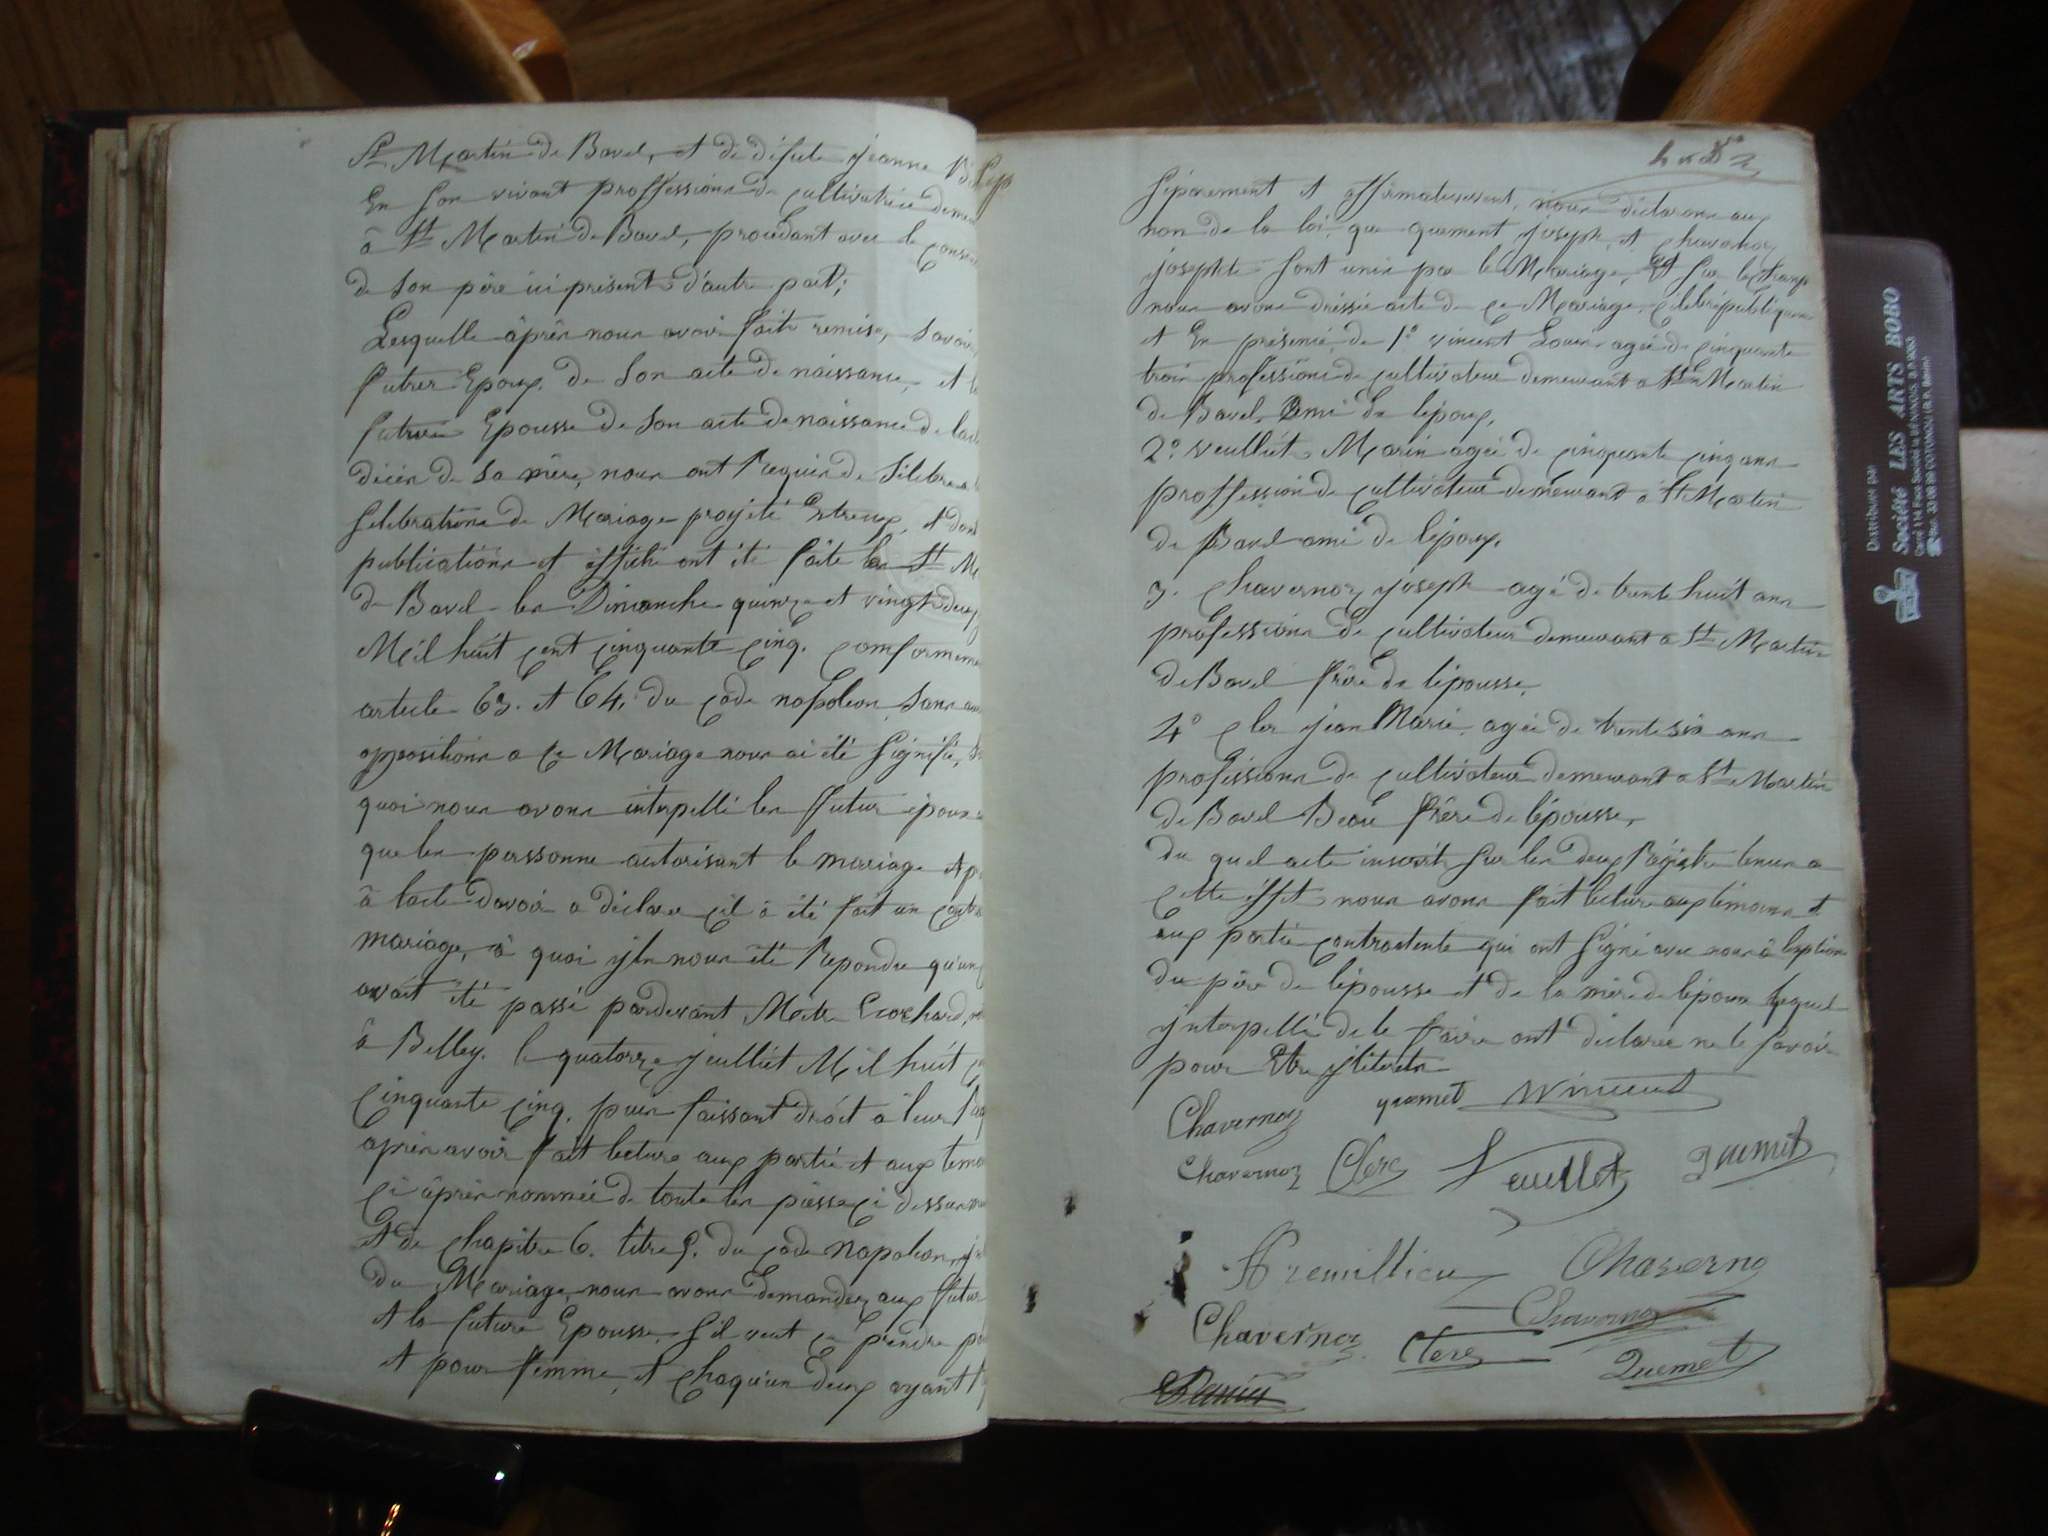 St Martin de Bavel, et de défute jeanne
En son vivant proffessions de cultivatrice
â St Martin de Bavel, procedant avec le
de son père ici présent d'autre part;
Lesquelle âprês nour avoir fait remise, Savoir
futur Epoux, de son acte de naissance, et
future Epousse de son acte de naissance de
décèr de sa mêre, nour ont Requir de
selebrations de Mariage projété Entreux, et dont
publications et affiche ont été faite St
de Bavel ler Dimanche quinze et vingt deux
Mil huit cent cinquante cinq. comformeme
article 63. et 64, du code napoleon, sanr
oppositions a ce Mariage nour ai été signifié,
quoi nour avonr interpellé ler futur époux
que ler perssonne autorisant le mariage et
â lacte davoir a déclarer cil â été fait un
mariage, â quoi ylr nour été Repondu qu'un
avait été passé pardevant Mêtre
â Belley. le quatorze jeulliet Mil huit
cinquante cinq, puir faissant droit a leur
aprèr avoir fait lecture aux partie et aux
ci âprèr nommée de toute ler pièsse ci dessur
et de chapitre 6. titre 5. du code Napoleon,
du Mariage, nour avonr demandez aux futur
et la future Epousse, s'il veut ce prendre
et pour femme, et chaqu'un deux ayant
séparement et affirmativement, nour déclaronr aux
nom de la loi, que quement joseph, et chavernoz
josephte sont unir par le Mariage, Et sur le champ
nour avonr dréssé acte de ce Mariage, célébré publiquem
et En présence, de 1° vincent Louir agée de cinquante
troir professions de cultivateur demeurant a St Martin
de Bavel, ami de lépoux,
2° veulliet Marin agée de cinquante cinq anr
proffession de cultivateur demeurant â St Martin
de Bavel ami de lépoux,
3. chavernoz joseph agé de trente huit anr
professions de cultivateur demeurant a St Martin
de Bavel frêre de lépousse,
4° cler jean Marie, agée de trente six anr
professions de cultivateur demeurant a St Martin
de Bavel Beau frêre de lépousse,
du quel acte inscrit sur ler deux Régistre tenur a
cette éffet nour avonr fait lecture aux témoinr et
aux partie contractente qui ont signé avec nour â lexption
du père de lépousse et de la mère de lépoux lequel
ynterpellé de le faire ont déclarée ne le savoir
pour Etre yliterér
Chavernoz quemet Wincent
Chavernoz Clerc Veuillet Quemet
Fremillieu Chaverno
Chavernoz
Chavernoz Clerc Quemet
Distribué par
Société LES ARTS BOBO